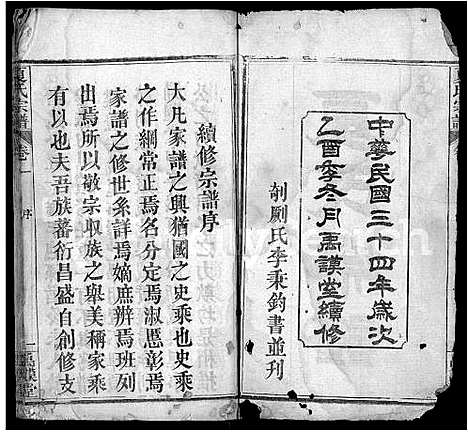 中華民國三十四年歲次
乙酉季冬月禹謨堂續修
剞劂氏李秉鈞書並刊
續修宗譜序
大凡家譜之興猶國之史乘也史乘
之作綱常正焉名分定焉淑慝彰焉
家譜之修世系詳焉嫡庶辨焉班列
出焉所以敬宗取族之舉美稱家乘
有以也夫吾族蕃衍昌盛自創修支
氏宗譜
卷一
序